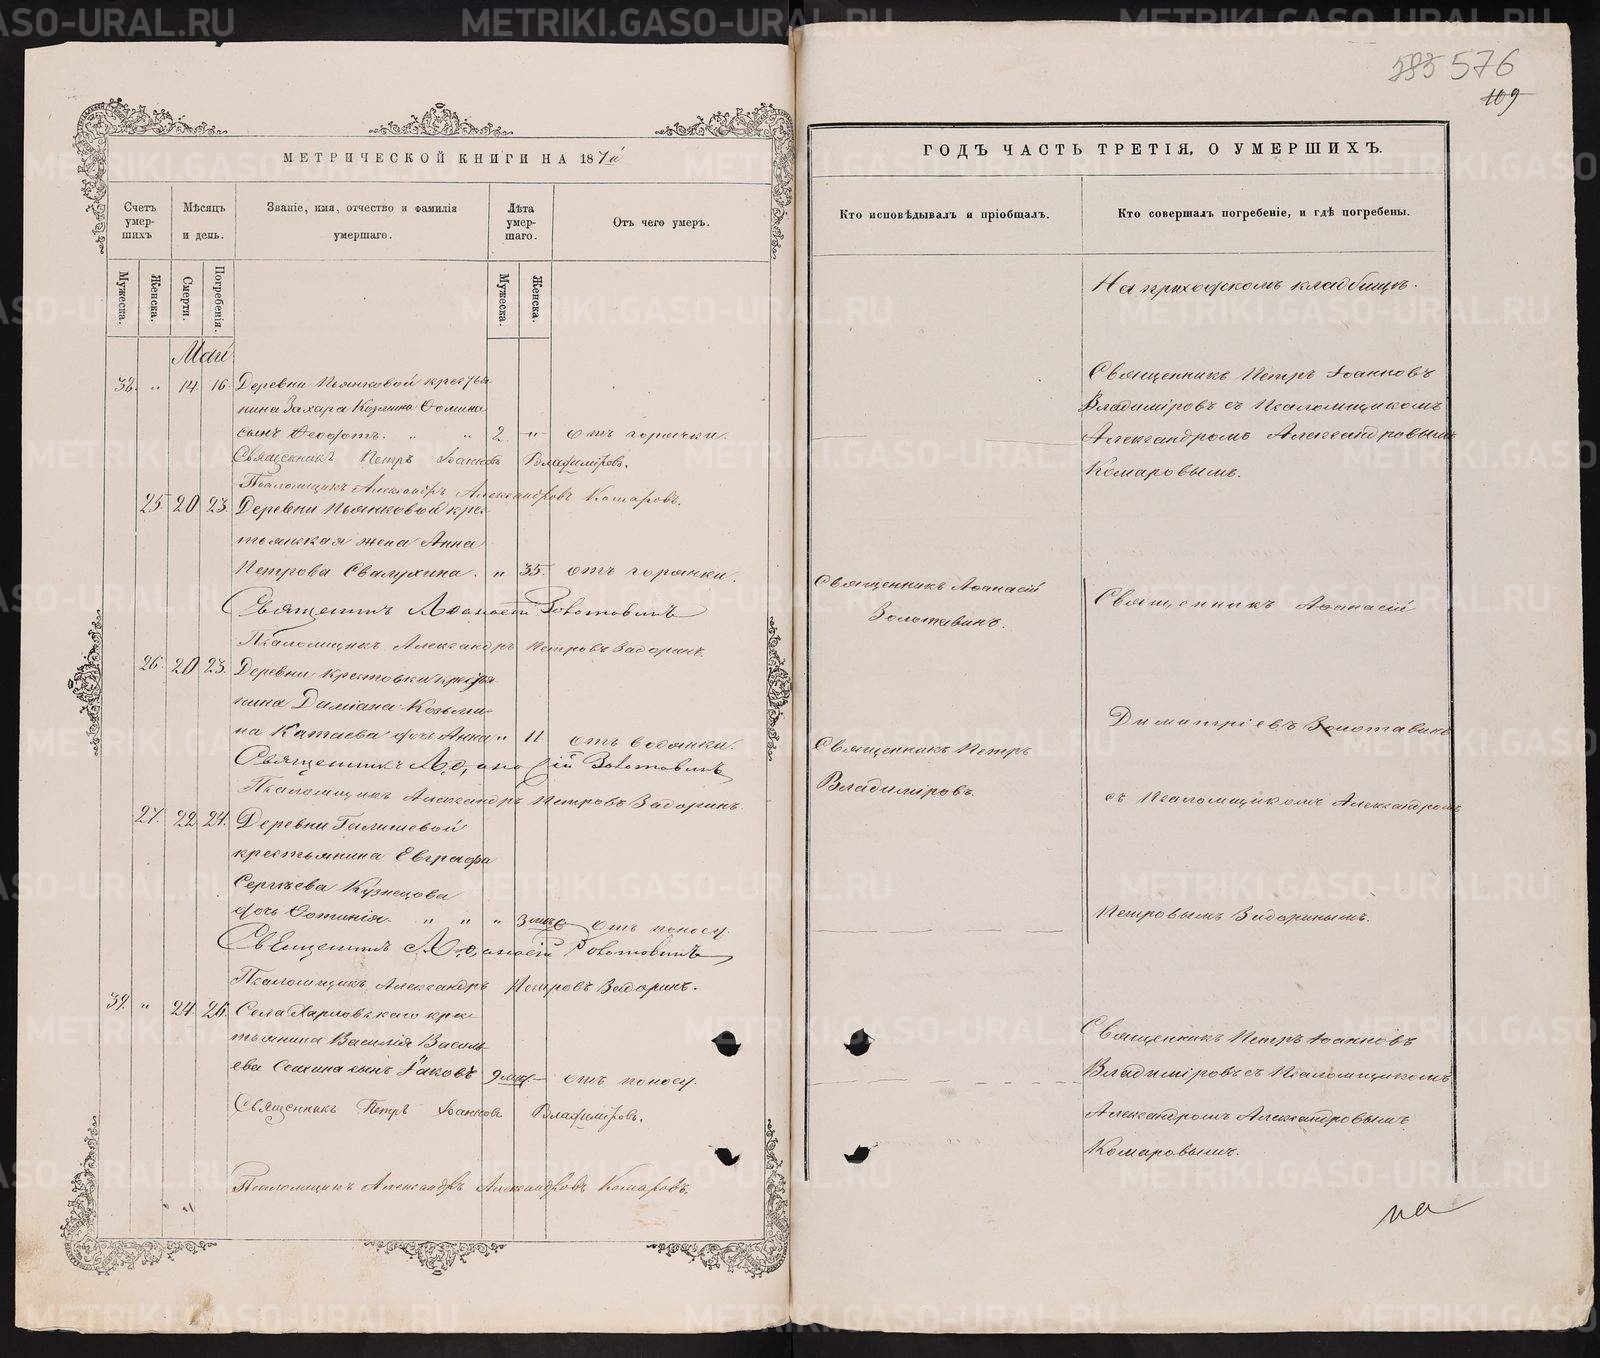 583 576
109
МЕТРИЧЕСКОЙ КНИГИ НА 187
Счетъ умер-шихъ
Мѣсяцъ и день.
Званіе, имя, отчество и фамилія умершаго.
Лѣта умер-шаго.
Отъ чего умеръ.
Мужеска.
Женска.
Смерти.
Погребенія.
Мужеска.
Женска.
Май
38. " 14 16. Деревни Пьянковой крестья-
нина Захара Козмина Ѳомина
сынъ Ѳеофотъ. " " 2. " отъ горячки.
Священникъ Петръ Іоанновъ Владиміровъ.
Псаломщикъ Александръ Александровъ Комаровъ.
25. 20 23. Деревни Пьянковой крес-
тьянская жена Анна
Петрова Свалухина. " 35. отъ горячки.
Священникъ Аѳанасій Золотавинъ
Псаломщикъ Александръ Петровъ Задоринъ.
26. 20 23. Деревни Крестовки крестья-
нина Даміана Козьми-
на Катаева дочь Анна " 11. отъ водянки.
Священникъ Аѳанасій Золотавинъ
Псаломщикъ Александръ Петровъ Задоринъ.
27. 22 24. Деревни Галишевой
крестьянина Евграфа
Сергѣева Кузнецова
дочь Фотинія. " " " 3 мѣс отъ поносу.
Священникъ Аѳанасій Золотавинъ
Псаломщикъ Александръ Петровъ Задоринъ.
39. " 24 26. Села Харловскаго крес-
тьянина Василія Василь-
ева сынъ Іаковъ 9 мѣс. отъ поносу.
Священникъ Петръ Іоанновъ Владиміровъ.
Псаломщикъ Александръ Александровъ Комаровъ.
ГОДЪ ЧАСТЬ ТРЕТІЯ, О УМЕРШИХЪ.
Кто исповѣдывалъ и пріобщалъ.
Кто совершалъ погребеніе, и гдѣ погребены.
На приходскомъ кладбищѣ.
Священникъ Петръ Іоанновъ
Владиміровъ съ Псаломщикомъ
Александромъ Александровымъ
Комаровымъ.
Священникъ Аѳанасій
Золотавинъ.
Священникъ Аѳанасій
Димитріевъ Золотавинъ
Священникъ Петръ
Владиміровъ.
съ Псаломщикомъ Александромъ
Петровымъ Задоринымъ.
Священникъ Петръ Іоанновъ
Владиміровъ съ Псаломщикомъ
Александромъ Александровымъ
Комаровымъ.
на
METRIKI.GASO-URAL.RU